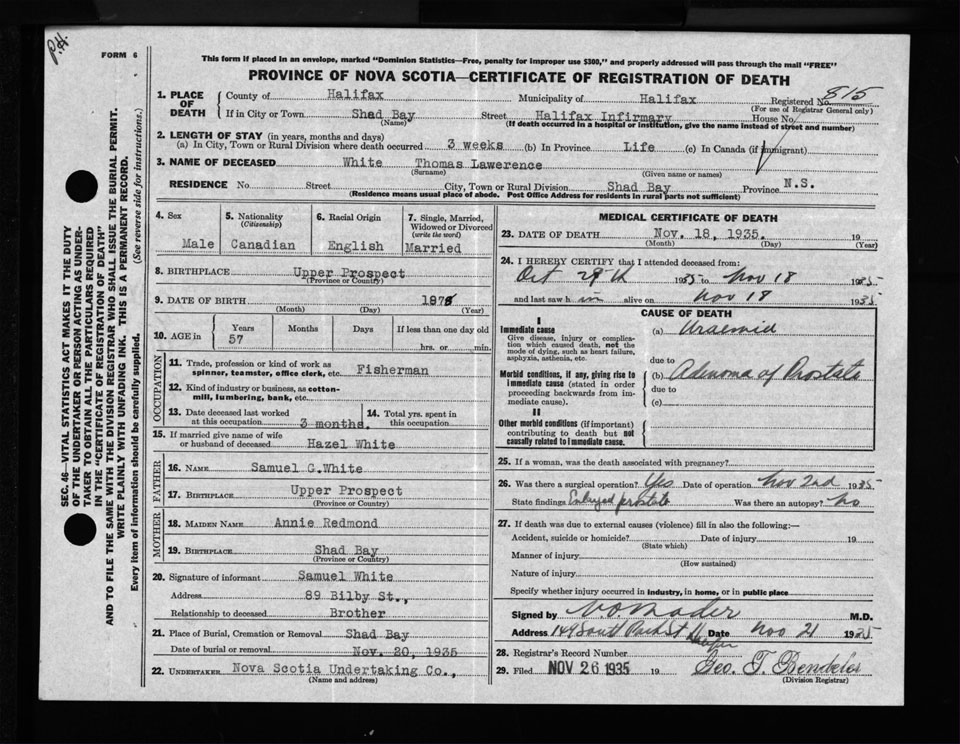 P.H.
FORM 6
This form if placed in an envelope, marked "Dominion Statistics—Free, penalty for improper use $300," and properly addressed will pass through the mail "FREE"
PROVINCE OF NOVA SCOTIA—CERTIFICATE OF REGISTRATION OF DEATH
SEC. 46—VITAL STATISTICS ACT MAKES IT THE DUTY
OF THE UNDERTAKER OR PERSON ACTING AS UNDER-
TAKER TO OBTAIN ALL THE PARTICULARS REQUIRED
IN THE "CERTIFICATE OF REGISTRATION OF DEATH"
AND TO FILE THE SAME WITH THE DIVISION REGISTRAR WHO SHALL ISSUE THE BURIAL PERMIT.
WRITE PLAINLY WITH UNFADING INK. THIS IS A PERMANENT RECORD.
Every item of information should be carefully supplied. (See reverse side for instructions.)
1. PLACE OF DEATH County of Halifax Municipality of Halifax Registered No. 815
(For use of Registrar General only)
If in City or Town Shad Bay Street Halifax Infirmary House No.
(Name) (If death occurred in a hospital or institution, give the name instead of street and number)
2. LENGTH OF STAY (in years, months and days)
(a) In City, Town or Rural Division where death occurred 3 weeks (b) In Province Life (c) In Canada (if immigrant)
3. NAME OF DECEASED White Thomas Lawerence
(Surname) (Given name or names)
RESIDENCE No. Street City, Town or Rural Division Shad Bay Province N.S.
(Residence means usual place of abode. Post Office Address for residents in rural parts not sufficient)
4. Sex Male
5. Nationality (Citizenship) Canadian
6. Racial Origin English
7. Single, Married, Widowed or Divorced (write the word) Married
8. BIRTHPLACE Upper Prospect
(Province or Country)
9. DATE OF BIRTH 1878
(Month) (Day) (Year)
10. AGE in Years 57 Months Days If less than one day old
hrs. or min.
OCCUPATION
11. Trade, profession or kind of work as
spinner, teamster, office clerk, etc. Fisherman
12. Kind of industry or business, as cotton-
mill, lumbering, bank, etc.
13. Date deceased last worked
at this occupation 3 months.
14. Total yrs. spent in
this occupation
15. If married give name of wife
or husband of deceased Hazel White
FATHER
16. NAME Samuel G.White
17. BIRTHPLACE Upper Prospect
(Province or Country)
MOTHER
18. MAIDEN NAME Annie Redmond
19. BIRTHPLACE Shad Bay
(Province or Country)
20. Signature of informant Samuel White
Address 89 Bilby St.,
Relationship to deceased Brother
21. Place of Burial, Cremation or Removal Shad Bay
Date of burial or removal Nov. 20, 1935
22. UNDERTAKER Nova Scotia Undertaking Co.,
(Name and address)
MEDICAL CERTIFICATE OF DEATH
23. DATE OF DEATH Nov. 18, 1935. 19
(Month) (Day) (Year)
24. I HEREBY CERTIFY that I attended deceased from:
Oct 29th 1935 to Nov 18 1935
and last saw him alive on Nov 18 1935
CAUSE OF DEATH
I
Immediate cause
Give disease, injury or complica-
tion which caused death, not the
mode of dying, such as heart failure,
asphyxia, asthenia, etc.
(a) Uraemia
due to
Morbid conditions, if any, giving rise to
immediate cause (stated in order
proceeding backwards from im-
mediate cause).
(b) Adenoma of Prostate
due to
(c)
II
Other morbid conditions (if important)
contributing to death but not
causally related to immediate cause.
25. If a woman, was the death associated with pregnancy?
26. Was there a surgical operation? Yes Date of operation Nov 2nd 1935
State findings Enlarged prostate Was there an autopsy? No
27. If death was due to external causes (violence) fill in also the following:—
Accident, suicide or homicide? Date of injury 19
(State which)
Manner of injury
(How sustained)
Nature of injury
Specify whether injury occurred in industry, in home, or in public place
Signed by V.O Mader M.D.
Address 149 South Park St Halifax Date Nov 21 1935
28. Registrar's Record Number
29. Filed NOV 26 1935 19 Geo. T.
(Division Registrar)